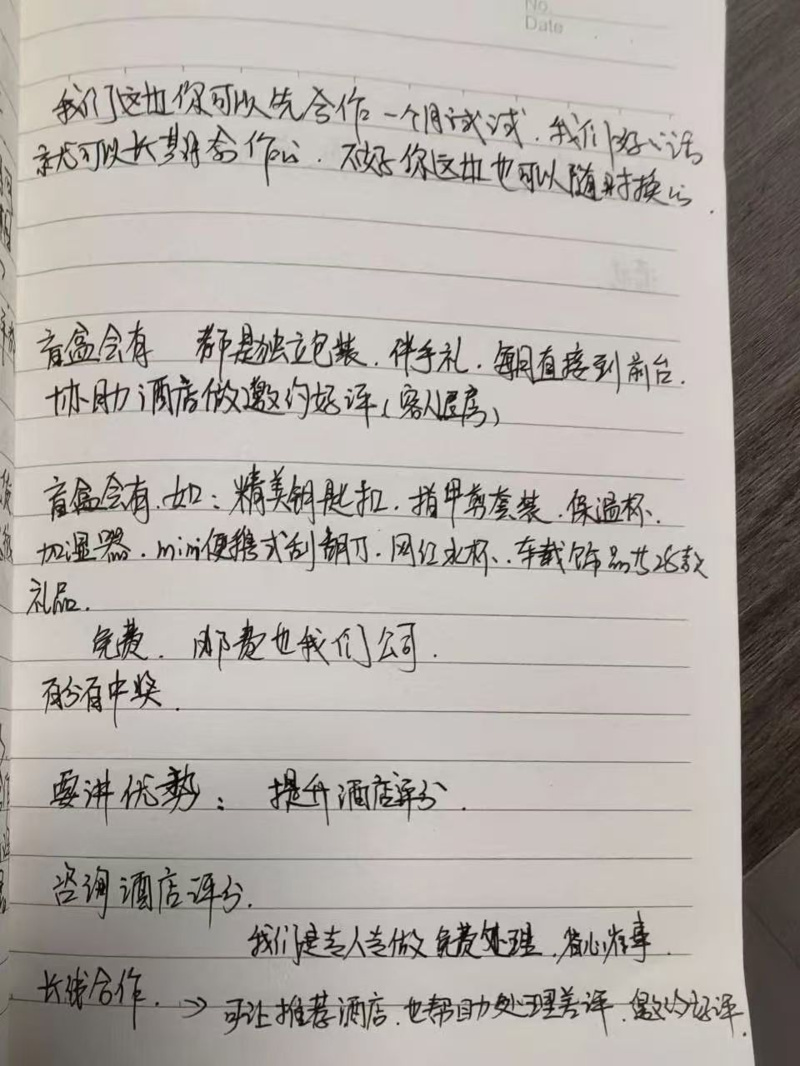 No.
Date
我们这边你可以先合作一个月试试.我们好的话
就可以长期合作的.不好你这边也可以随时换的.
盲盒会有 都是独立包装.伴手礼.每月直接到前台.
协助酒店做邀约好评(客人退房)
盲盒会有.如:精美钥匙扣.指甲剪套装.保温杯、
加湿器.mini便携式刮胡刀.网红水杯、车载饰品共28款
礼品.
免费.邮费也我们公司.
百分百中奖.
要讲优势: 提升酒店评分.
咨询酒店评分.
我们是专人专做免费处理.省心省事.
长线合作. → 可让推荐酒店.也帮助处理差评.邀约好评.